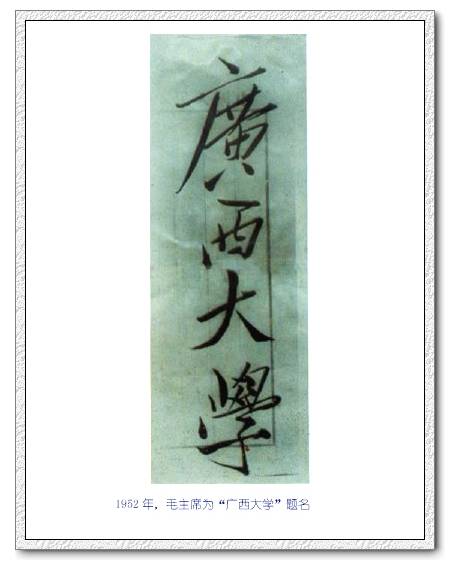 廣西大學
1952年，毛主席为“广西大学”题名